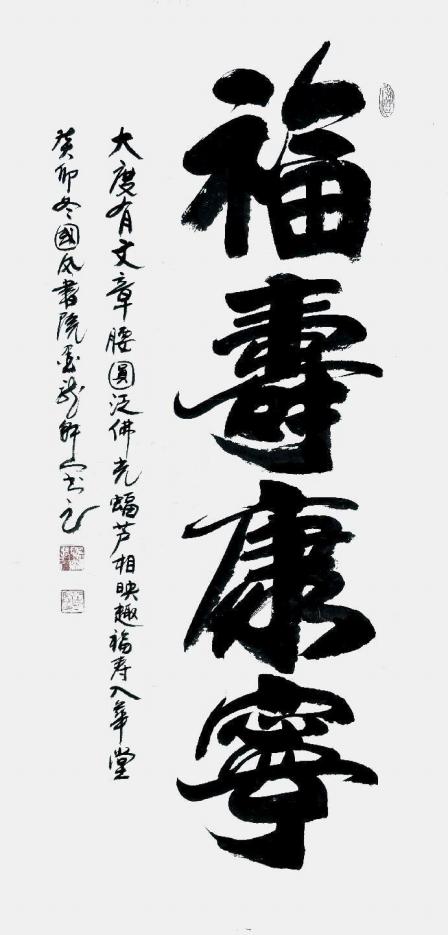 福壽康寧
大度有文章腰圓泛佛光蝠芦相映趣福寿入華堂
癸卯冬國风書院墨龙